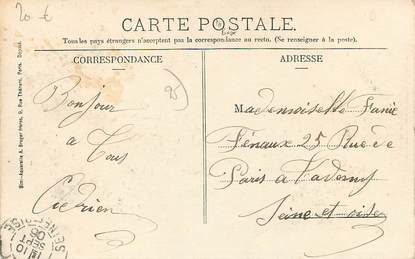 20 €
CARTE POSTALE.
Tous les pays étrangers n'acceptent pas la correspondance au recto. (Se renseigner à la poste).
CORRESPONDANCE
ADRESSE
Bonjour
a Tous
Adrien
Mademoiselle Fanie
Fénaux 25 Rue de
Paris a Taverny
Seine et oise
SEINE ET OISE
10
SEPT